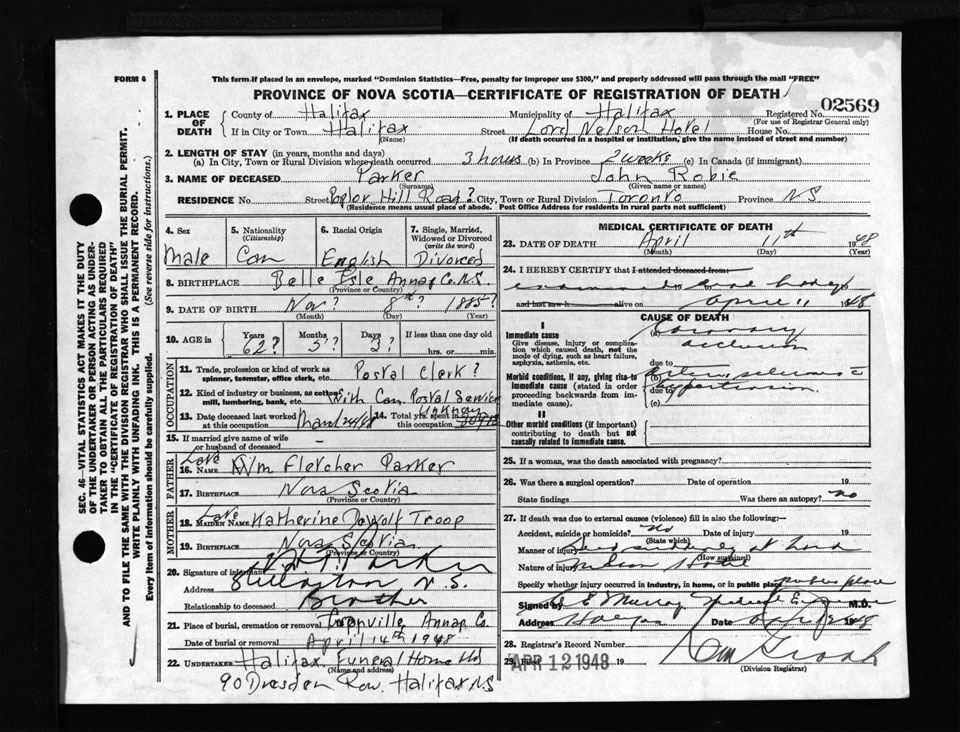 FORM 6
This form if placed in an envelope, marked "Dominion Statistics—Free, penalty for improper use $300," and properly addressed will pass through the mail "FREE"
PROVINCE OF NOVA SCOTIA—CERTIFICATE OF REGISTRATION OF DEATH
Registered No. 02569
(For use of Registrar General only)
1. PLACE OF DEATH County of Halifax Municipality of Halifax
If in City or Town Halifax Street Lord Nelson Hotel House No.
(Name) (If death occurred in a hospital or institution, give the name instead of street and number)
2. LENGTH OF STAY (in years, months and days)
(a) In City, Town or Rural Division where death occurred 3 hours (b) In Province 2 weeks (c) In Canada (if immigrant)
3. NAME OF DECEASED Parker John Robie
(Surname) (Given name or names)
RESIDENCE No. Street Poplor Hill Road? City, Town or Rural Division Toronto Province NS
(Residence means usual place of abode. Post Office Address for residents in rural parts not sufficient)
4. Sex
Male
5. Nationality
(Citizenship)
Can
6. Racial Origin
English
7. Single, Married, Widowed or Divorced
(write the word)
Divorced
8. BIRTHPLACE Belle Isle Annap Co. N.S.
(Province or Country)
9. DATE OF BIRTH Nov? 8th? 1885?
(Month) (Day) (Year)
10. AGE in Years 62? Months 5? Days 3? If less than one day old
hrs. or min.
OCCUPATION
11. Trade, profession or kind of work as spinner, teamster, office clerk, etc. Postal Clerk?
12. Kind of industry or business, as cotton mill, lumbering, bank, etc. With Can. Postal Service
13. Date deceased last worked at this occupation 14. Total yrs. spent in this occupation Unknown
15. If married give name of wife or husband of deceased
FATHER
16. NAME Late Wm Fletcher Parker
17. BIRTHPLACE Nova Scotia
(Province or Country)
MOTHER
18. MAIDEN NAME Late Katherine Dewolf Troop
19. BIRTHPLACE Nova Scotia
(Province or Country)
20. Signature of informant Parker
Address N.S.
Relationship to deceased Brother
21. Place of burial, cremation or removal Annap. Co.
Date of burial or removal April 14th 1948
22. UNDERTAKER Halifax Funeral Home Ltd
(Name and address)
90 Dresden Row. Halifax NS
MEDICAL CERTIFICATE OF DEATH
23. DATE OF DEATH April 11th 1948
(Month) (Day) (Year)
24. I HEREBY CERTIFY that I attended deceased from:
examined body
and last saw h alive on April 11 1948
CAUSE OF DEATH
I
Immediate cause (a) Coronary occlusion
Give disease, injury or complication which caused death, not the mode of dying, such as heart failure, asphyxia, asthenia, etc.
due to
Morbid conditions, if any, giving rise to immediate cause (stated in order proceeding backwards from immediate cause). (b) hypertension
due to
(c)
II
Other morbid conditions (if important) contributing to death but not causally related to immediate cause.
25. If a woman, was the death associated with pregnancy?
26. Was there a surgical operation? Date of operation 19
State findings Was there an autopsy? no
27. If death was due to external causes (violence) fill in also the following:—
Accident, suicide or homicide? no Date of injury 19
(State which)
Manner of injury Died suddenly at Lord
(How sustained)
Nature of injury Nelson Hotel
Specify whether injury occurred in industry, in home, or in public place public place
Signed by Murray M.D.
Address Halifax Date 1948
28. Registrar's Record Number
29. Filed APR 12 1948 19
(Division Registrar)
SEC. 46—VITAL STATISTICS ACT MAKES IT THE DUTY
OF THE UNDERTAKER OR PERSON ACTING AS UNDER-
TAKER TO OBTAIN ALL THE PARTICULARS REQUIRED
IN THE "CERTIFICATE OF REGISTRATION OF DEATH"
AND TO FILE THE SAME WITH THE DIVISION REGISTRAR WHO SHALL ISSUE THE BURIAL PERMIT.
WRITE PLAINLY WITH UNFADING INK. THIS IS A PERMANENT RECORD.
Every item of information should be carefully supplied. (See reverse side for instructions.)